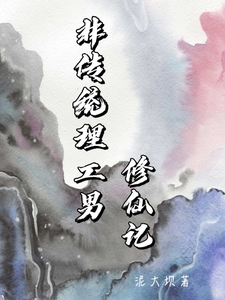 非传统理工男
修仙记
泥大坝著